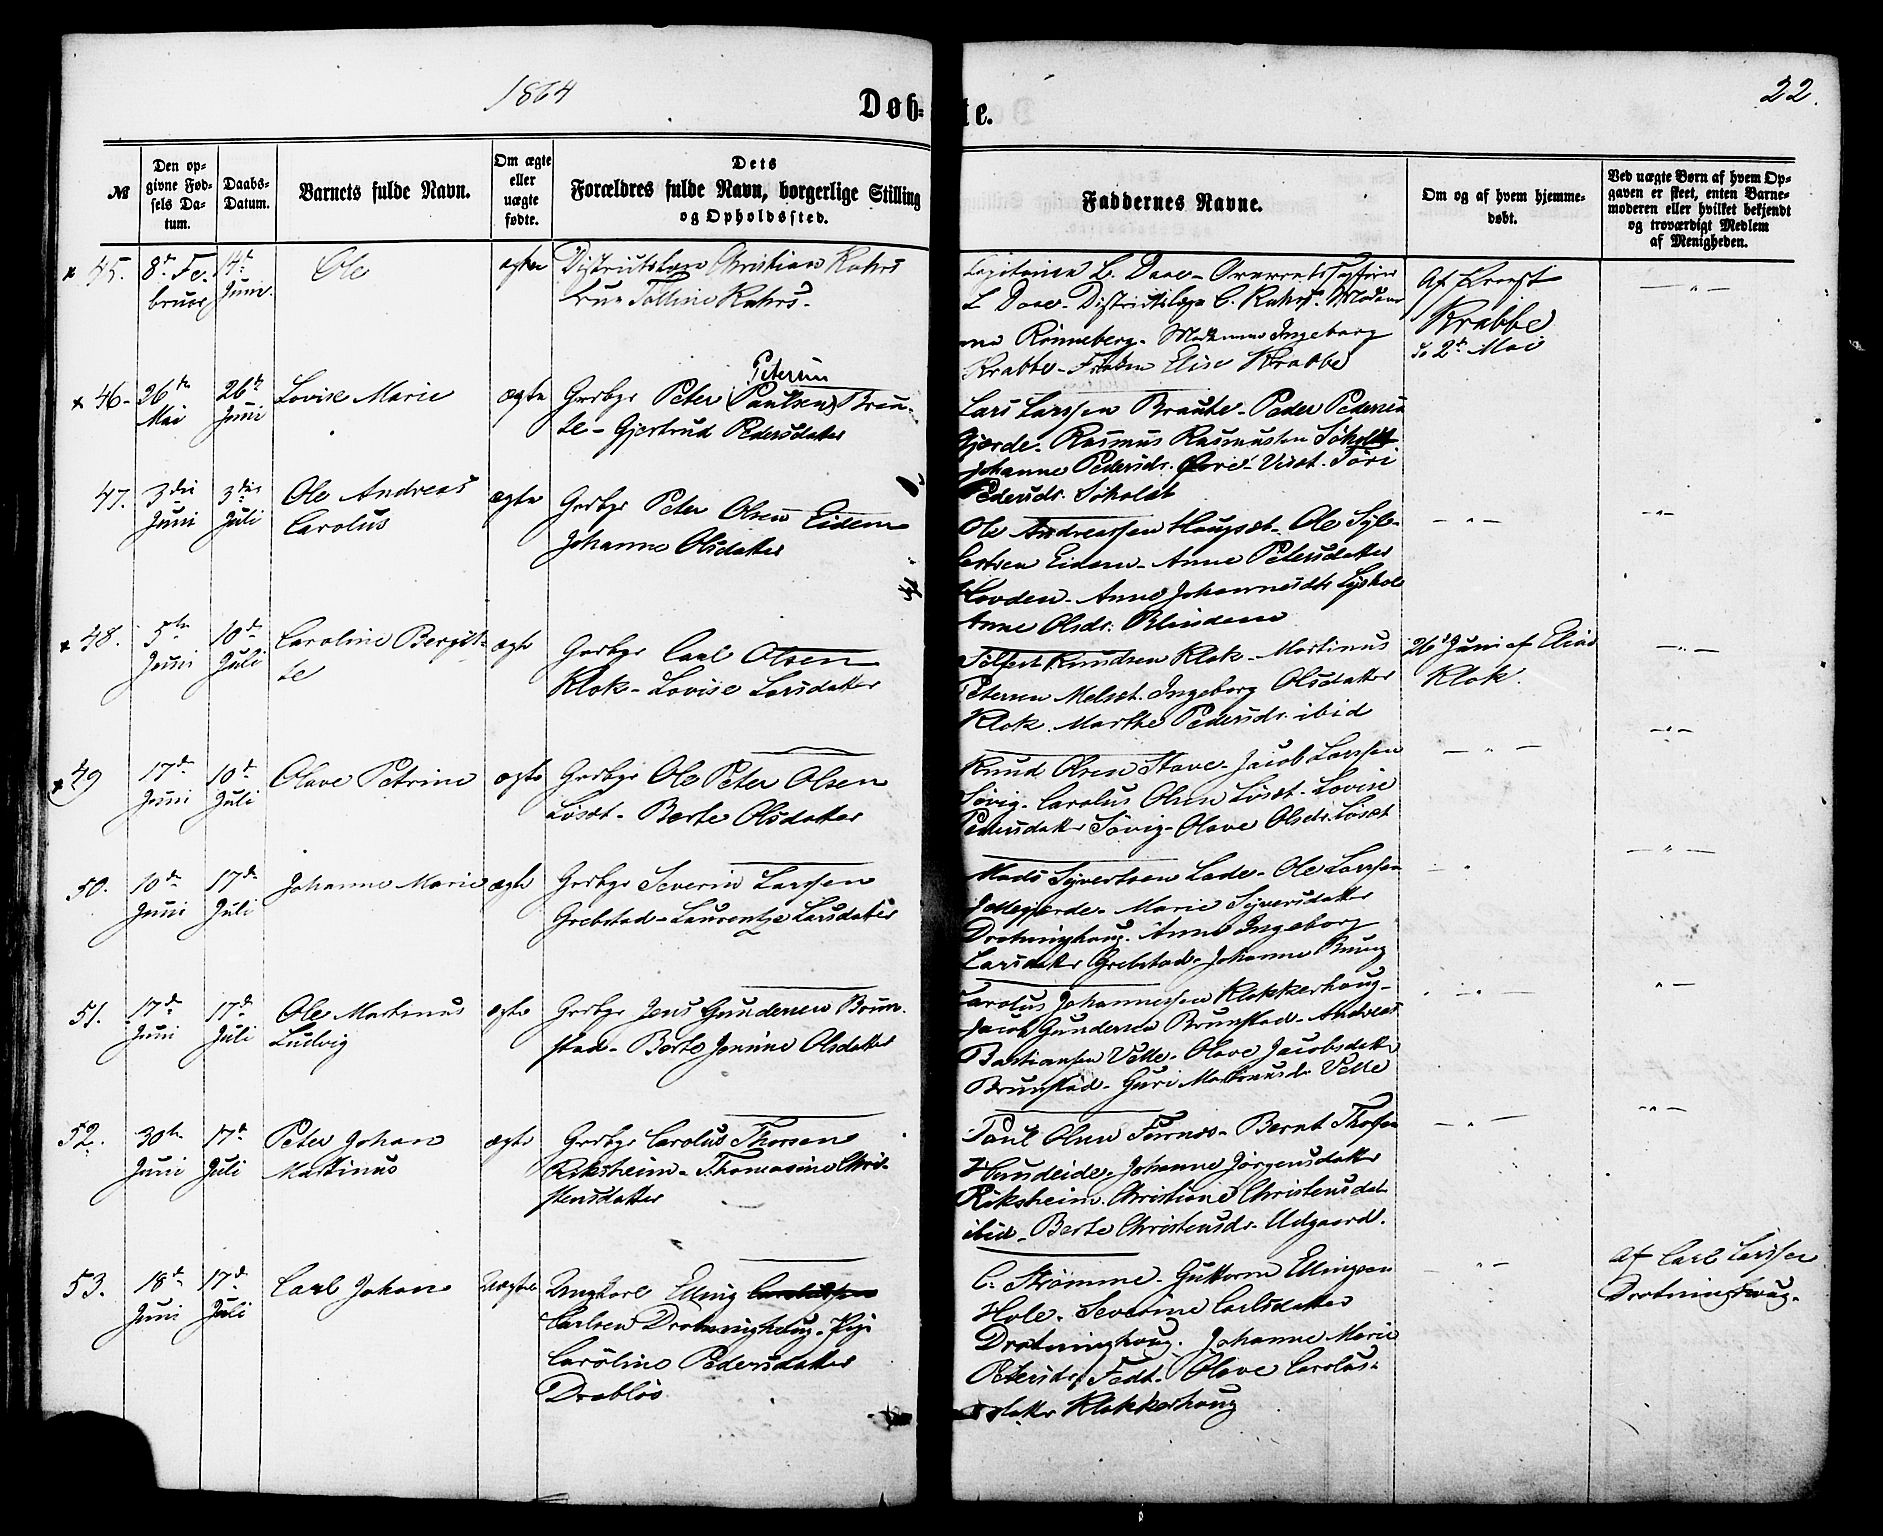 1864
Døb-
te.
22.
№
Den op-
givne Fød-
sels Da-
tum.
Daabs-
Datum.
Barnets fulde Navn.
Om ægte
eller
uægte
fødte.
Dets
Forældres fulde Navn, borgerlige Stilling
og Opholdssted.
Faddernes Navne.
Om og af hvem hjemme-
døbt.
Ved uægte Børn af hvem Op-
gaven er skeet, enten Barne-
moderen eller hvilket bekjendt
og troværdigt Medlem
af Menigheden.
x 45.
8de Fe-
bruar
14de
Juni.
Ole
ægte
Christian Rahrs
Rahrs.
L. Daae -
L Daae - Districtslæge C. Rahrs.
Rønneberg - Madame Ingeborg
Krabbe - Frøken Elise Krabbe
Af Provst
Krabbe
2de Mai
x 46.
26de
Mai
26de
Juni
Lovise Marie
ægte
Petersen
Grdbgr Peter (Paulsen) Brau-
te - Gjertrud Pedersdatter
Lars Larssen Braute - Peder Pedersen
Gjærde. Rasmus Rasmussen Søholdt
Johanne Pedersdr.
Pedersdr. Søholdt
47.
3die
Juni
3die
Juli
Ole Andreas
Carolus
ægte
Grdbgr Peter Olsen Eidem
Johanne Olsdatter
Ole Andreassen Haugset - Ole Syl-
Eidem - Anne Petersdatter
Hovden - Anne Johannesdtr
Anne Olsdr. Blindem
x 48.
5te
Juni
10de
Juli
Caroline Bergit-
te
ægte
Grdbgr Carl Olsen
Klok - Lovise Larsdatter
Knudsen Klok - Martinus
Petersen Melset. Ingeborg Olsdatter
Klok. Marthe Pedersdr. ibid
26 Juni af Elias
Klok.
x 49
17de
Juni
10de
Juli
Olave Petrine
ægte
Grdbgr Ole Peter Olsen
Løset - Berte Olsdatter
Knud Olsen Stave - Jacob Larssen
Søvig - Carolus Olsen Løset - Lovise
Petersdatter Søvig - Olave Olsdr. Løset
50.
10de
Juni
17de
Juli
Johanne Marie
ægte
Grdbgr Severin Larssen
Grebstad - Laurentze Larsdatter
Mads Syvertsen Lade - Ole Larssen
Marie Syversdatter
Drotninghaug. Anne Ingeborg
Larsdatter Grebstad - Johanne Bung
51.
17de
Juni
17de
Juli
Ole Martinus
Ludvig
ægte
Grdbgr Jens Gundersen Brun-
stad - Berte Jensine Olsdatter
Carolus Johannessen Klokkerhaug -
Jacob Gundersen Brunstad - Andreas
Bastiansen Velle - Olave Jacobsdatter
Brunstad - Guri Martinusdr Velle
52.
30te
Juni
17de
Juli
Peter Johan
Martinus
ægte
Grdbgr Carolus Thorsen
Riksheim - Thomasine Chri-
stensdatter
Paul Olsen Furnes - Bernt Thorsen
Hundeide. Johanne Jørgensdatter
Riksheim. Christiane Christensdat
ibid - Berte Christensdr. Udgaard.
53.
18de
Juni
17de
Juli
Carl Johan
Uægte
Ungkarl Elling
Carlsen Drotninghaug. Pige
Caroline Pedersdatter
Drabløs
C. Strømme - Guttorm Ellingsen
Hole - Severine Carlsdatter
Drotninghaug. Johanne Marie
Petersdr Fedt. Olave Carolus-
datter Klokkerhaug
Af Carl Larssen
Drotninghaug.